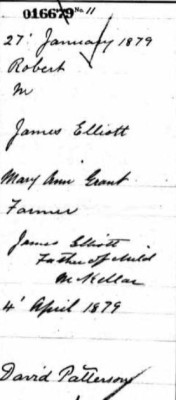 016679 No. 11
27' January 1879
Robert
M
James Elliott
Mary Ann Grant
Farmer
James Elliott
Father of child
McKellar
4' April 1879
David Patterson